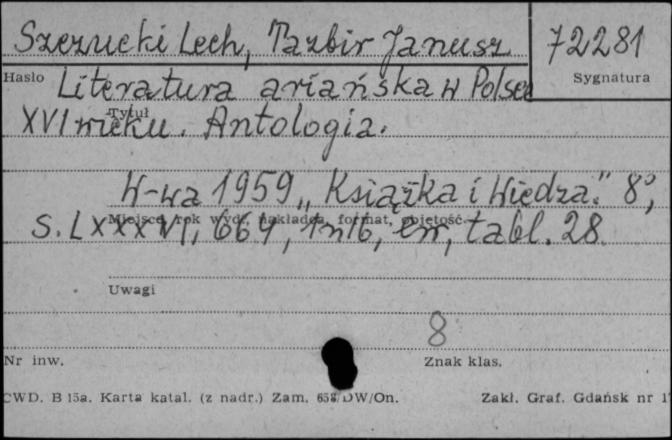 Szczucki Lech, Tazbir Janusz
72281
Hasło
Sygnatura
Literatura ariańska w Polsce
Tytuł
XVI wieku. Antologia.
W-wa 1959 „Książka i Wiedza." 8°,
Miejsce, rok wyd., nakładca, format, objętość
s. LXXXVI, 664, 1nlb, tabl. 28.
Uwagi
8
Nr inw.
Znak klas.
CWD. B 15a. Karta katal. (z nadr.) Zam. 658/DW/On.
Zakł. Graf. Gdańsk nr 1